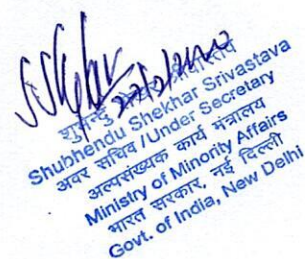 शुभेन्दु
Shubhendu Shekhar Srivastava
अवर सचिव / Under Secretary
अल्पसंख्यक कार्य मंत्रालय
Ministry of Minority Affairs
भारत सरकार, नई दिल्ली
Govt. of India, New Delhi